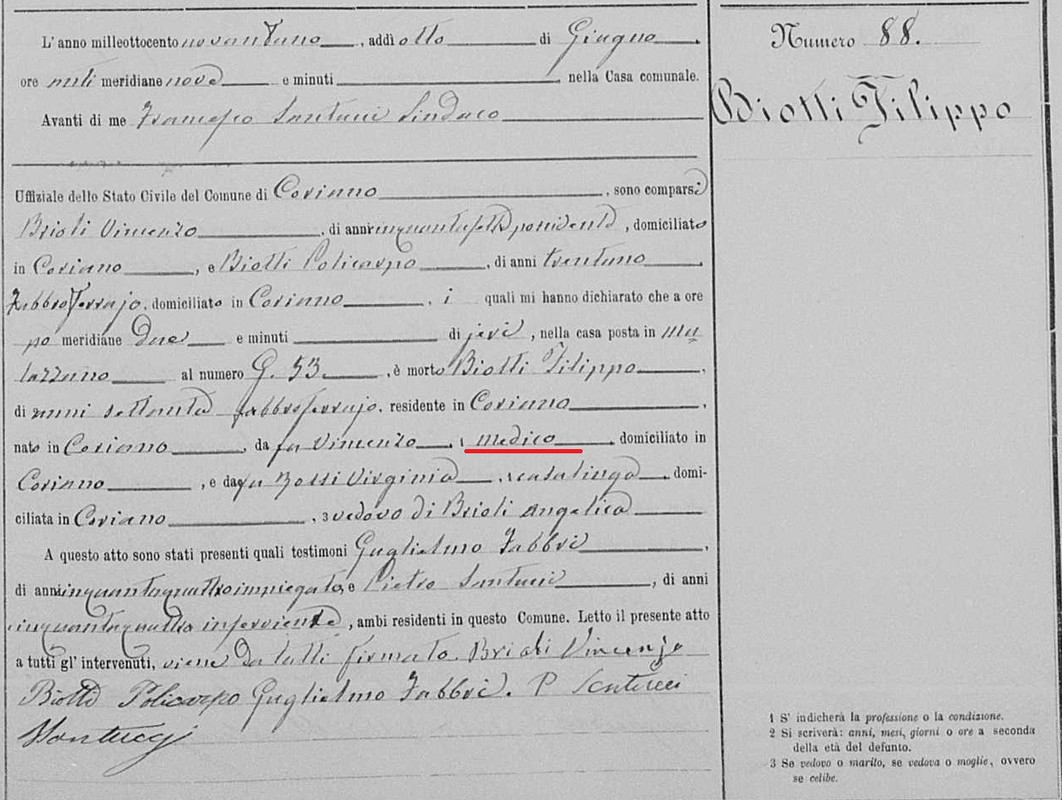 L' anno milleottocento novantuno, addì otto di Giugno,
ore anti meridiane nove e minuti nella Casa comunale.
Avanti di me Francesco Santucci Sindaco
Uffiziale dello Stato Civile del Comune di Coriano, sono comparsi
Brioli Vincenzo, di anni cinquantasette possidente, domiciliato
in Coriano, e Biotti Policarpo, di anni trentuno
Fabbroferrajo, domiciliato in Coriano, i quali mi hanno dichiarato che a ore
po meridiane due e minuti di jeri, nella casa posta in Mu
lazzano al numero G. 53., è morto Biotti Filippo,
di anni settanta fabbroferrajo, residente in Coriano,
nato in Coriano, da fu Vincenzo, 1 medico, domiciliato in
Coriano, e da fu Bossi Virginia, 1 casalinga domi-
ciliata in Coriano, 3 vedovo di Brioli Angelica
A questo atto sono stati presenti quali testimoni Guglielmo Fabbri,
di anni cinquantaquattro impiegato, e Pietro Santucci, di anni
cinquantaquattro inserviente, ambi residenti in questo Comune. Letto il presente atto
a tutti gl' intervenuti, viene da tutti firmato. Brioli Vincenzo
Biotti Policarpo Guglielmo Fabbri. P Santucci
Santucci
Numero 88.
Biotti Filippo
1 S' indicherà la professione o la condizione.
2 Si scriverà: anni, mesi, giorni o ore a seconda
della età del defunto.
3 Se vedovo o marito, se vedova o moglie, ovvero
se celibe.